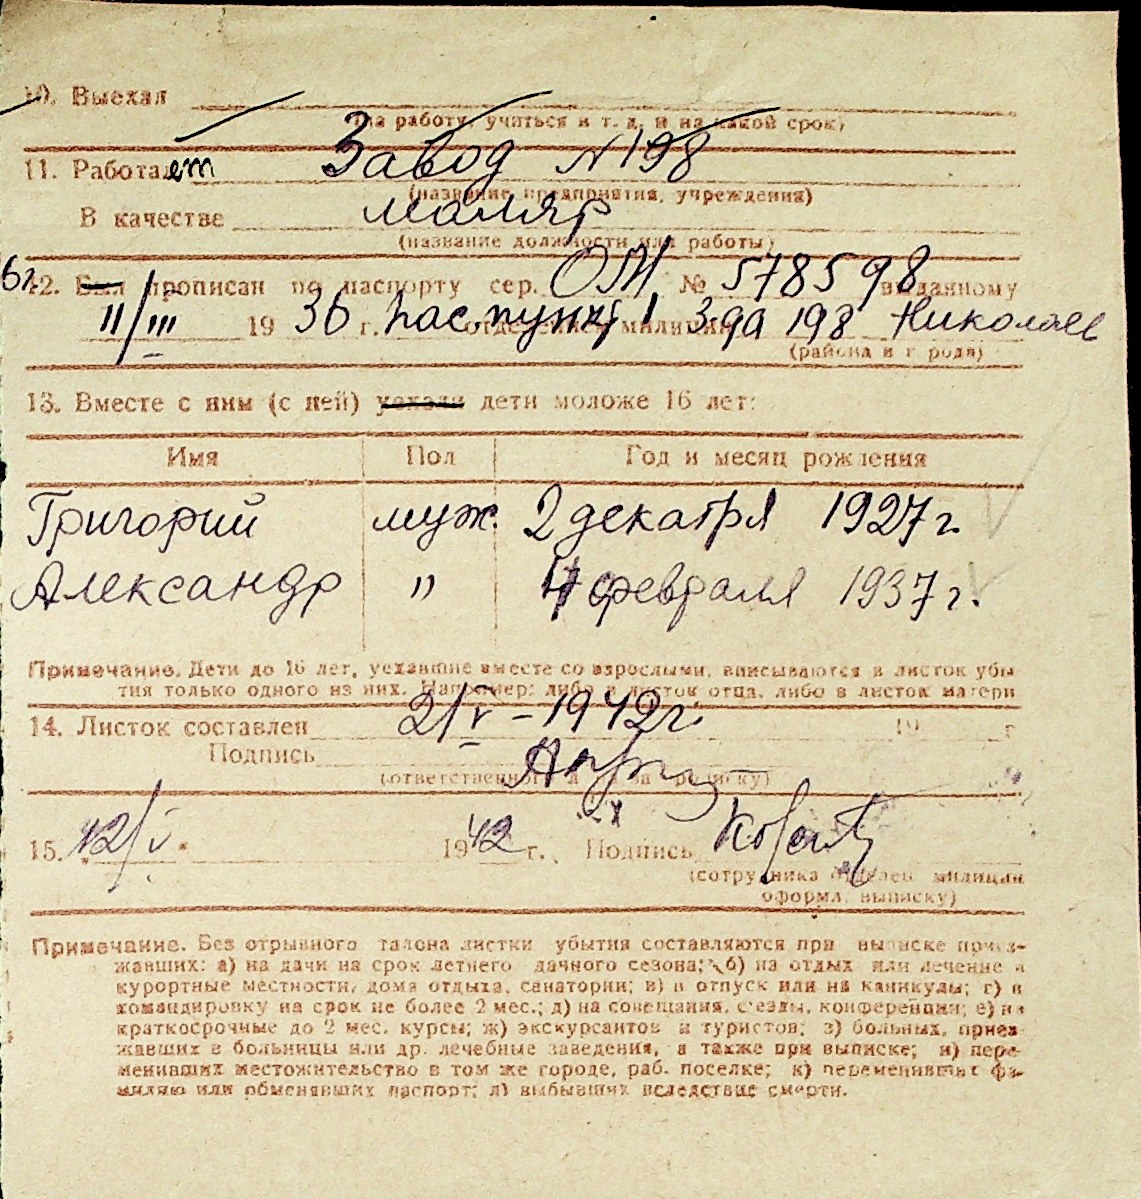 10. Выехал
(на работу, учиться и т. д. и на какой срок)
11. Работает Завод N 198
(название предприятия, учреждения)
В качестве маляр
(название должности или работы)
12. Был прописан по паспорту сер. № 578598 выданному
11/III 1936 г. пас пункт 1 отделением милиции з-да 198 Николаев
(района и г рода)
13. Вместе с ним (с ней) уехали дети моложе 16 лет:
Имя Пол Год и месяц рождения
Григорий муж. 2 декабря 1927 г.
Александр " февраля 1937 г.
Примечание. Дети до 16 лет, уехавшие вместе со взрослыми, вписываются в листок убы-
тия только одного из них. Например: либо в листок отца, либо в листок матери
14. Листок составлен 2/V – 1942 г. 19 г
Подпись
15. 12/V 1942 г. Подпись
(сотрудника отделен милиции
оформ. выписку)
Примечание. Без отрывного талона листки убытия составляются при выписке приез-
жавших: а) на дачи на срок летнего дачного сезона; б) на отдых или лечение в
курортные местности, дома отдыха, санатории; в) в отпуск или на каникулы; г) в
командировку на срок не более 2 мес.; д) на совещания, с'езды, конференции; е) на
краткосрочные до 2 мес. курсы; ж) экскурсантов и туристов; з) больных, приез-
жавших в больницы или др. лечебные заведения, а также при выписке; и) пере-
менивших местожительство в том же городе, раб. поселке; к) переменивших фа-
милию или обменявших паспорт; л) выбывших вследствие смерти.